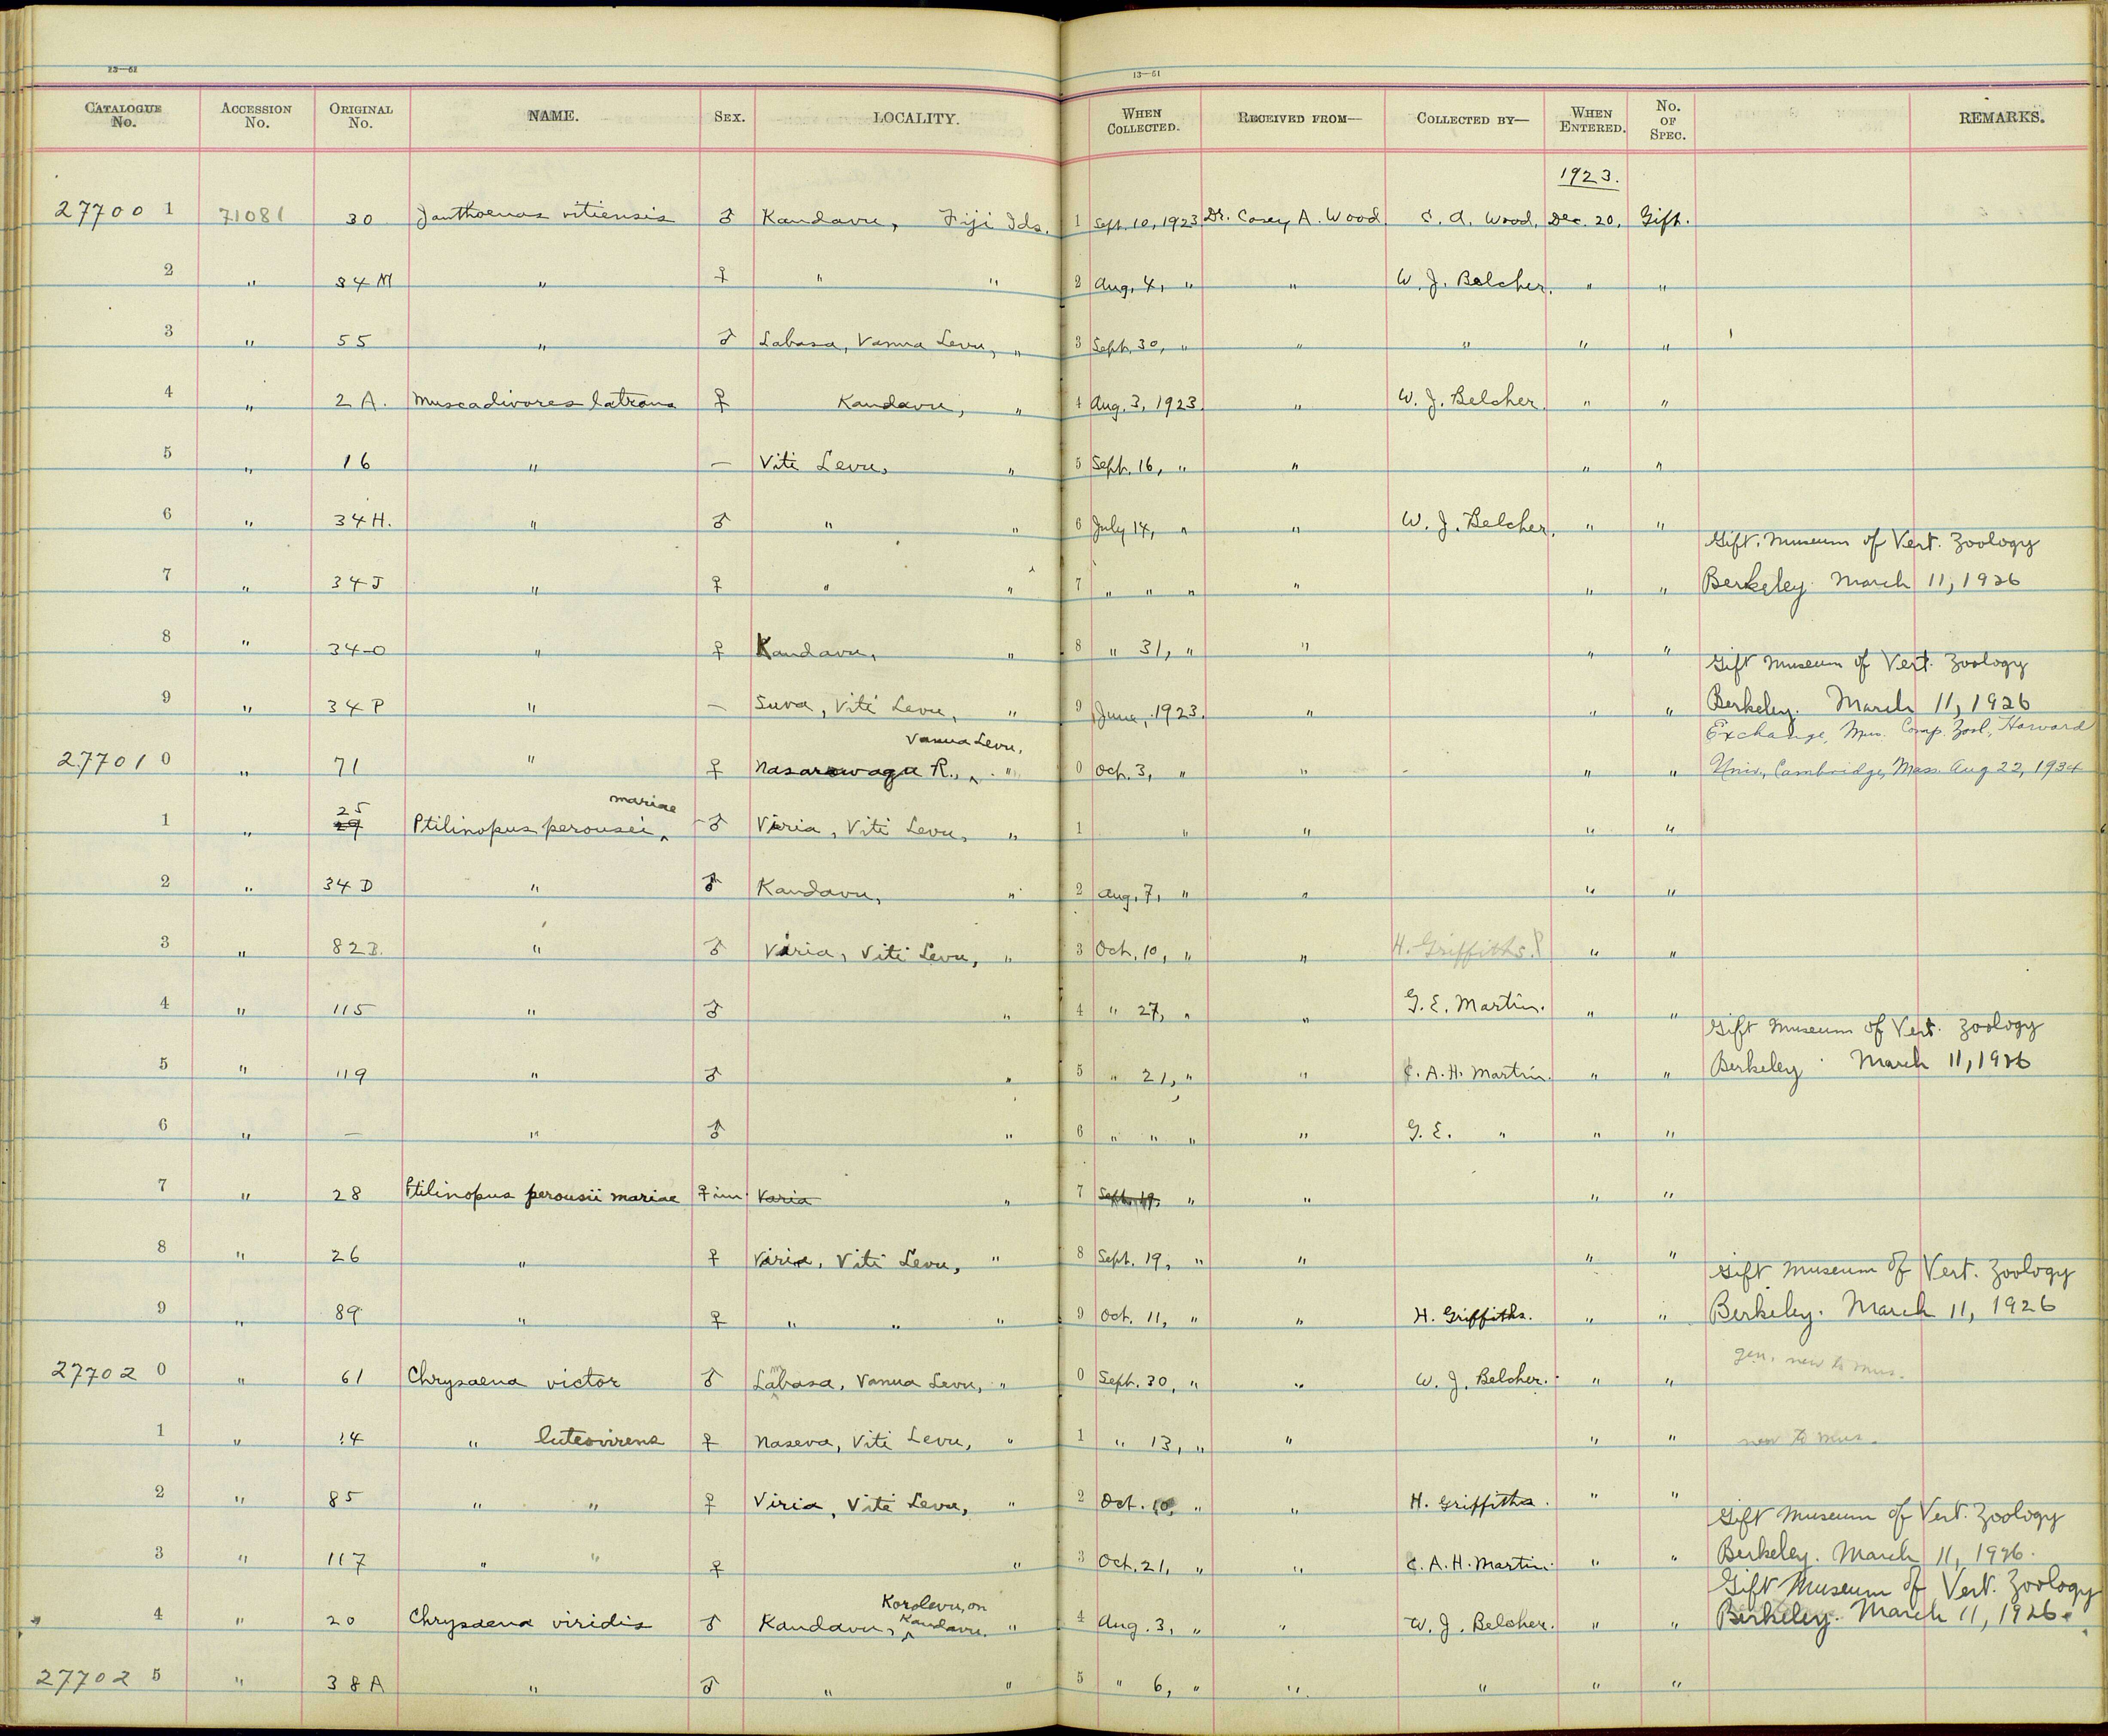 13—61
13—61
CATALOGUE No. ACCESSION No. ORIGINAL No. NAME. SEX. LOCALITY. WHEN COLLECTED. RECEIVED FROM— COLLECTED BY— WHEN ENTERED. No. OF SPEC. REMARKS.
1923.
27700 1 71081 30 Janthoenas vitiensis ♂ Kandavu, Fiji Ids. 1 Sept. 10, 1923 Dr. Casey A. Wood. C. A. Wood, Dec. 20, Gift.
2 " 34 M " ♀ " " 2 Aug. 4, " " W. J. Belcher. " "
3 " 55 " ♂ Labasa, Vanua Levu, " 3 Sept. 30, " " " " "
4 " 2 A. Muscadivores latrans ♀ Kandavu, " 4 Aug. 3, 1923. " W. J. Belcher. " "
5 " 16 " — Viti Levu, " 5 Sept. 16, " " " "
6 " 34 H. " ♂ " " 6 July 14, " " W. J. Belcher. " "
Gift. Museum of Vert. Zoology
7 " 34 J " ♀ " " 7 " " " " " " Berkeley. March 11, 1926
8 " 34-O " ♀ Kandavu, " 8 " 31, " " " "
Gift Museum of Vert. Zoology
9 " 34 P " — Suva, Viti Levu, " 9 June, 1923. " " " Berkeley. March 11, 1926
Vanua Levu,
Exchange, Mus. Comp. Zool., Harvard
27701 0 " 71 " ♀ Nasarawaga R., " 0 Oct. 3, " " " " Univ., Cambridge, Mass. Aug 22, 1934
25 mariae
1 " 29 Ptilinopus perousei ♂ Viria, Viti Levu, " 1 " " " "
2 " 34 D " ♂ Kandavu, " 2 Aug. 7, " " " "
3 " 82 B. " ♂ Viria, Viti Levu, " 3 Oct. 10, " " H. Griffiths.? " "
4 " 115 " ♂ " 4 " 27, " " G. E. Martin. " "
Gift Museum of Vert. Zoology
5 " 119 " ♂ " 5 " 21, " " C. A. H. Martin. " " Berkeley March 11, 1926
6 " — " ♂ " 6 " " " " G. E. " " "
7 " 28 Ptilinopus perousii mariae ♀ im. Varia " 7 Sept. 19, " " " "
8 " 26 " ♀ Viria, Viti Levu, " 8 Sept. 19, " " " "
Gift Museum of Vert. Zoology
9 " 89 " ♀ " " " 9 Oct. 11, " " H. Griffiths. " " Berkeley. March 11, 1926
m
gen. new to mus.
27702 0 " 61 Chrysaena victor ♂ Labasa, Vanua Levu, " 0 Sept. 30, " " W. J. Belcher. " "
1 " 14 " luteovirens ♀ Naseva, Viti Levu, " 1 " 13, " " " " new to mus.
2 " 85 " " ♀ Viria, Viti Levu, " 2 Oct. 10, " " H. Griffiths. " "
Gift Museum of Vert. Zoology
3 " 117 " " ♀ " 3 Oct. 21, " " C. A. H. Martin. " " Berkeley. March 11, 1926.
Korolevu, on
Gift Museum of Vert. Zoology
4 " 20 Chrysaena viridis ♂ Kandavu, Kandavu. " 4 Aug. 3, " " W. J. Belcher. " " Berkeley. March 11, 1926.
27702 5 " 38 A " ♂ " " 5 " 6, " " " " "